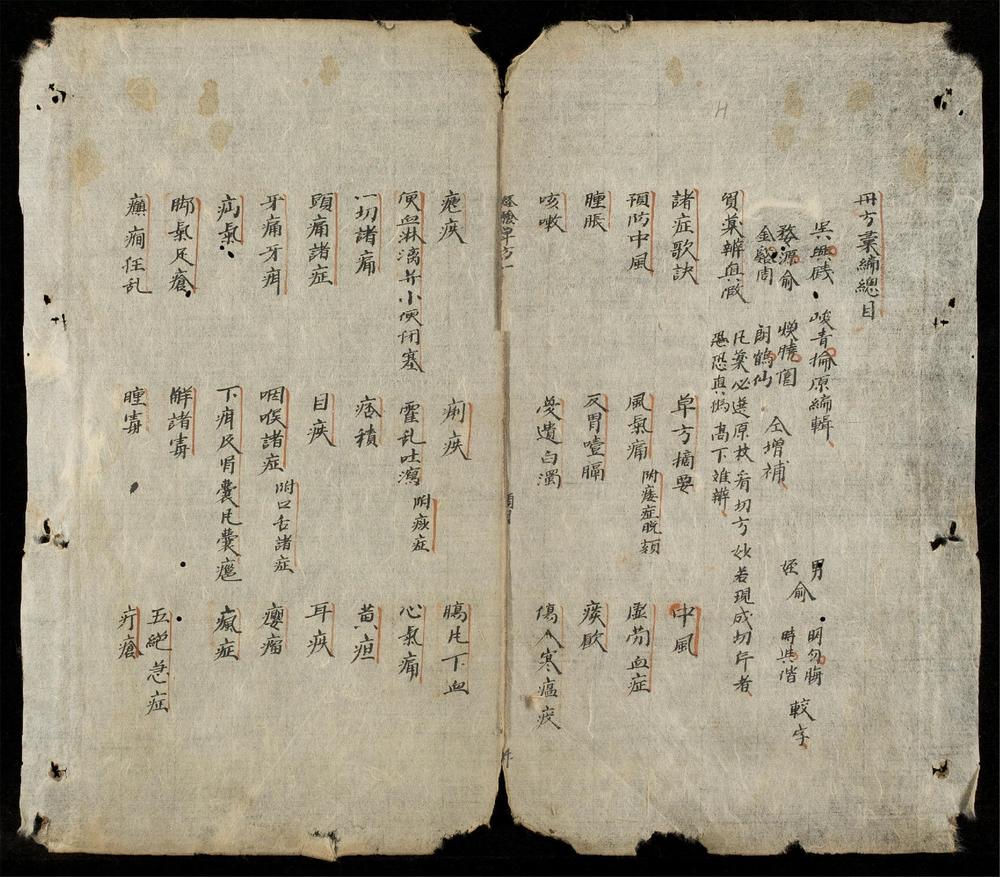 丹方彙編總目
吳興錢 峻青掄原編輯
婺源俞 煥曉園
金磐周 朗鶴仙 仝增補
男 明勿晦
姪俞 時共階 較字
買藥辨真假 凡藥必選原枝看切方妙若現成切片者
恐真偽高下難辨
諸症歌訣 阜方摘要 中風
預防中風 風氣痛 附痿症脫頦 虛勞血症
腫脹 反胃噎膈 痰飲
咳嗽 夢遺白濁 傷寒瘟疫
經驗單方一
瘧疾 痢疾 腸風下血
便血淋漓并小便閉塞 霍乱吐瀉 附痧症 心氣痛
一切諸痛 痞積 黃疸
頭痛諸症 目疾 耳疾
牙痛牙疳 咽喉諸症 附口舌諸症 癭瘤
疝氣 下疳及腎囊風囊癰 瘋症
脚氣足瘡 解諸毒 五絕急症
癲癇狂乱 腫毒 疔瘡